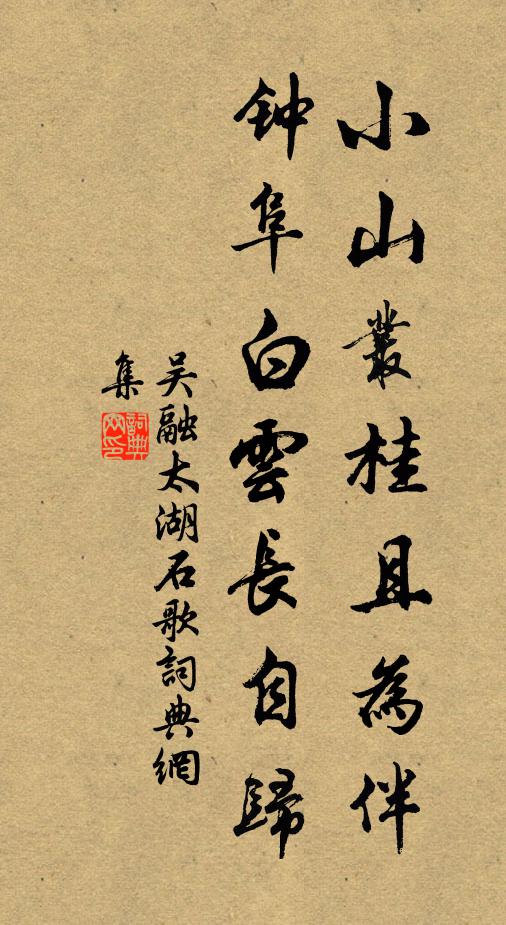 小山叢桂且為伴
钟阜白雲長自歸
吴融太湖石歌詞典網
集
詞典網印